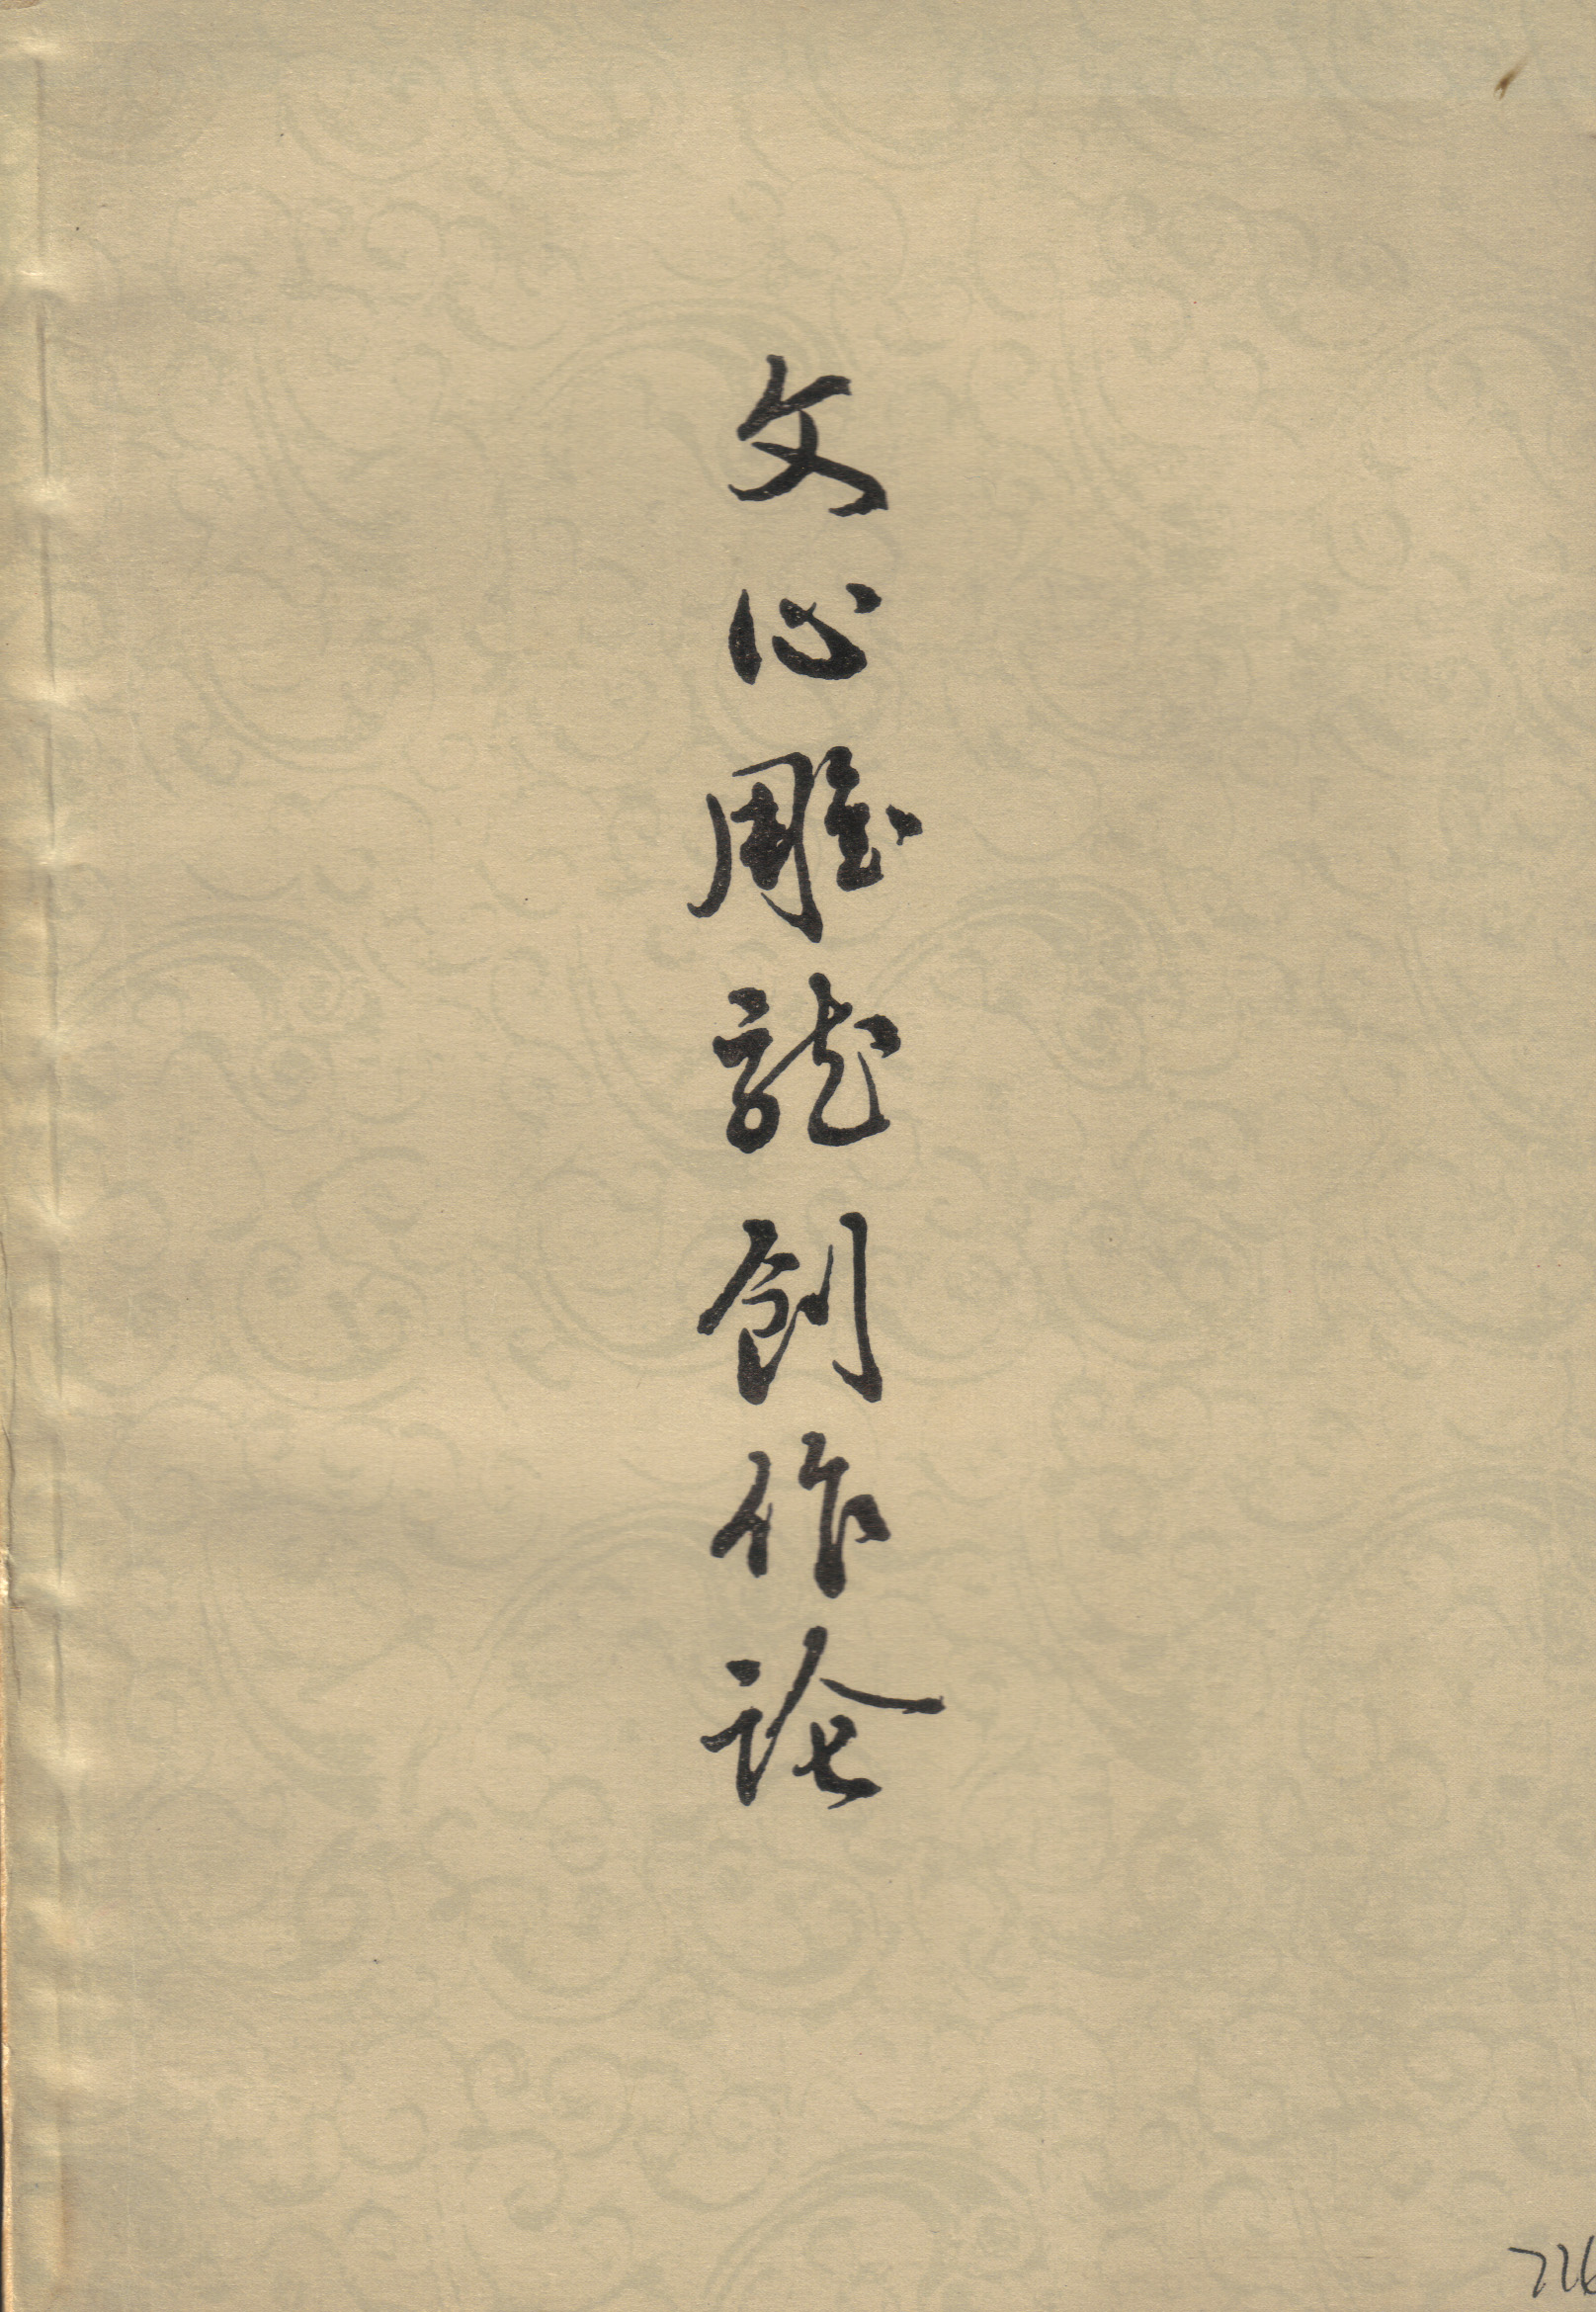 文心雕龙创作论
726